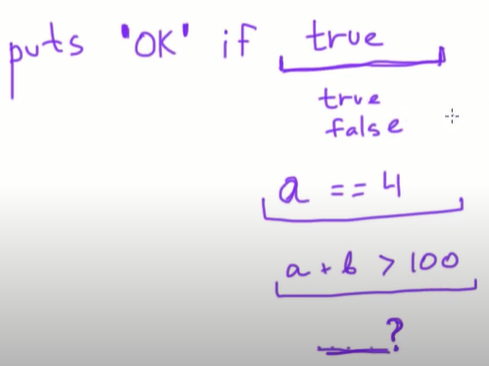 puts 'OK' if true
true
false
a == 4
a + b > 100
____?